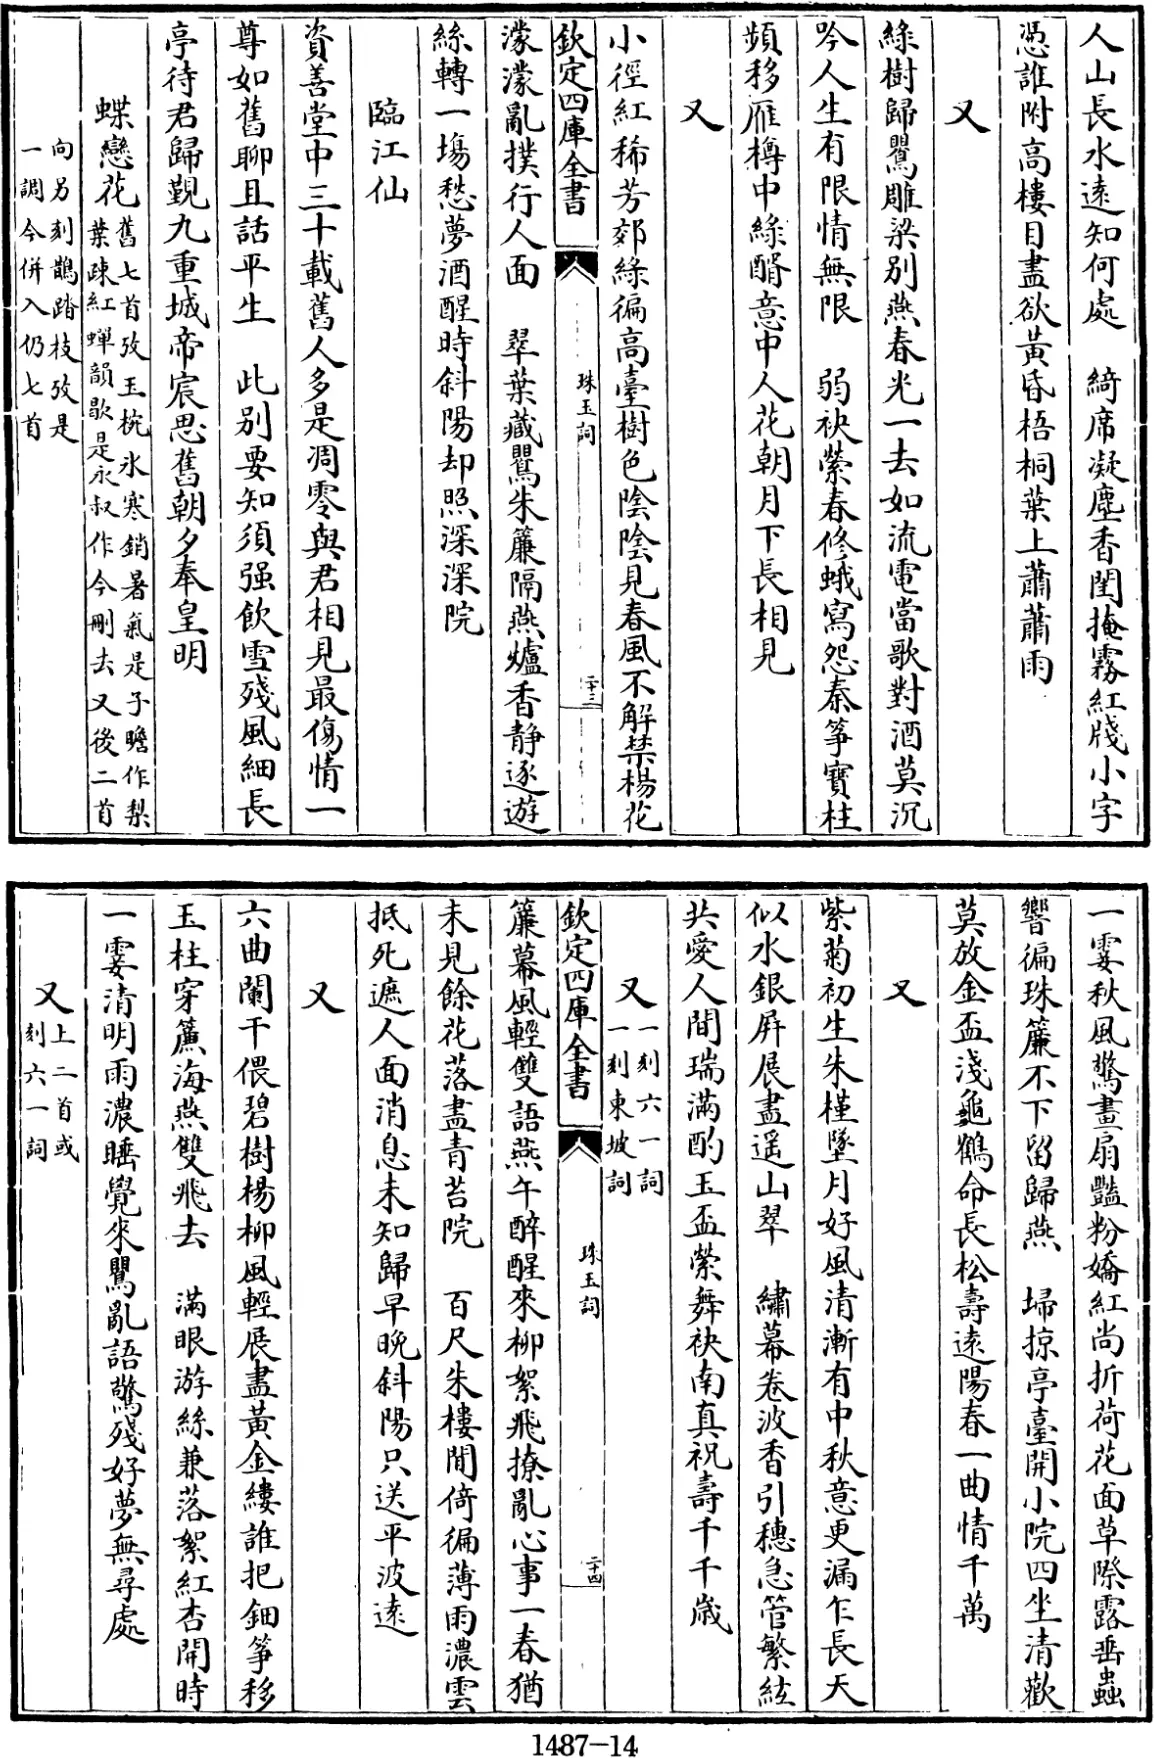 人山長水遠知何處　綺席凝塵香閨掩霧紅牋小字
憑誰附高樓目盡欲黃昏梧桐葉上蕭蕭雨
又
綠樹歸鶯雕梁別燕春光一去如流電當歌對酒莫沉
吟人生有限情無限　弱袂縈春修蛾寫怨秦箏寶柱
頻移雁樽中綠醑意中人花朝月下長相見
又
小徑紅稀芳郊綠徧高臺樹色陰陰見春風不解禁楊花
欽定四庫全書
珠玉詞
二十三
濛濛亂撲行人面　翠葉藏鶯朱簾隔燕爐香靜逐遊
絲轉一場愁夢酒醒時斜陽却照深深院
臨江仙
資善堂中三十載舊人多是凋零與君相見最傷情一
尊如舊聊且話平生　此別要知須强飲雪殘風細長
亭待君歸覲九重城帝宸思舊朝夕奉皇明
蝶戀花
舊七首攷玉椀氷寒銷暑氣是子瞻作梨
葉疎紅蟬韻歇是永叔作今刪去又後二首
向另刻鵲踏枝攷是
一調今併入仍七首
一霎秋風驚畫扇豔粉嬌紅尚折荷花面草際露垂蟲
響徧珠簾不下留歸燕　埽掠亭臺開小院四坐清歡
莫放金盃淺龜鶴命長松壽遠陽春一曲情千萬
又
紫菊初生朱槿墜月好風清漸有中秋意更漏乍長天
似水銀屏展盡遥山翠　繡幕卷波香引穗急管繁絃
共愛人間瑞滿酌玉盃縈舞袂南真祝壽千千歲
又
一刻六一詞
一刻東坡詞
欽定四庫全書
珠玉詞
二十四
簾幕風輕雙語燕午醉醒來柳絮飛撩亂心事一春猶
未見餘花落盡青苔院　百尺朱樓閒倚徧薄雨濃雲
抵死遮人面消息未知歸早晚斜陽只送平波遠
又
六曲闌干偎碧樹楊柳風輕展盡黃金縷誰把鈿箏移
玉柱穿簾海燕雙飛去　滿眼游絲兼落絮紅杏開時
一霎清明雨濃睡覺來鶯亂語驚殘好夢無尋處
又
上二首或
刻六一詞
1487-14